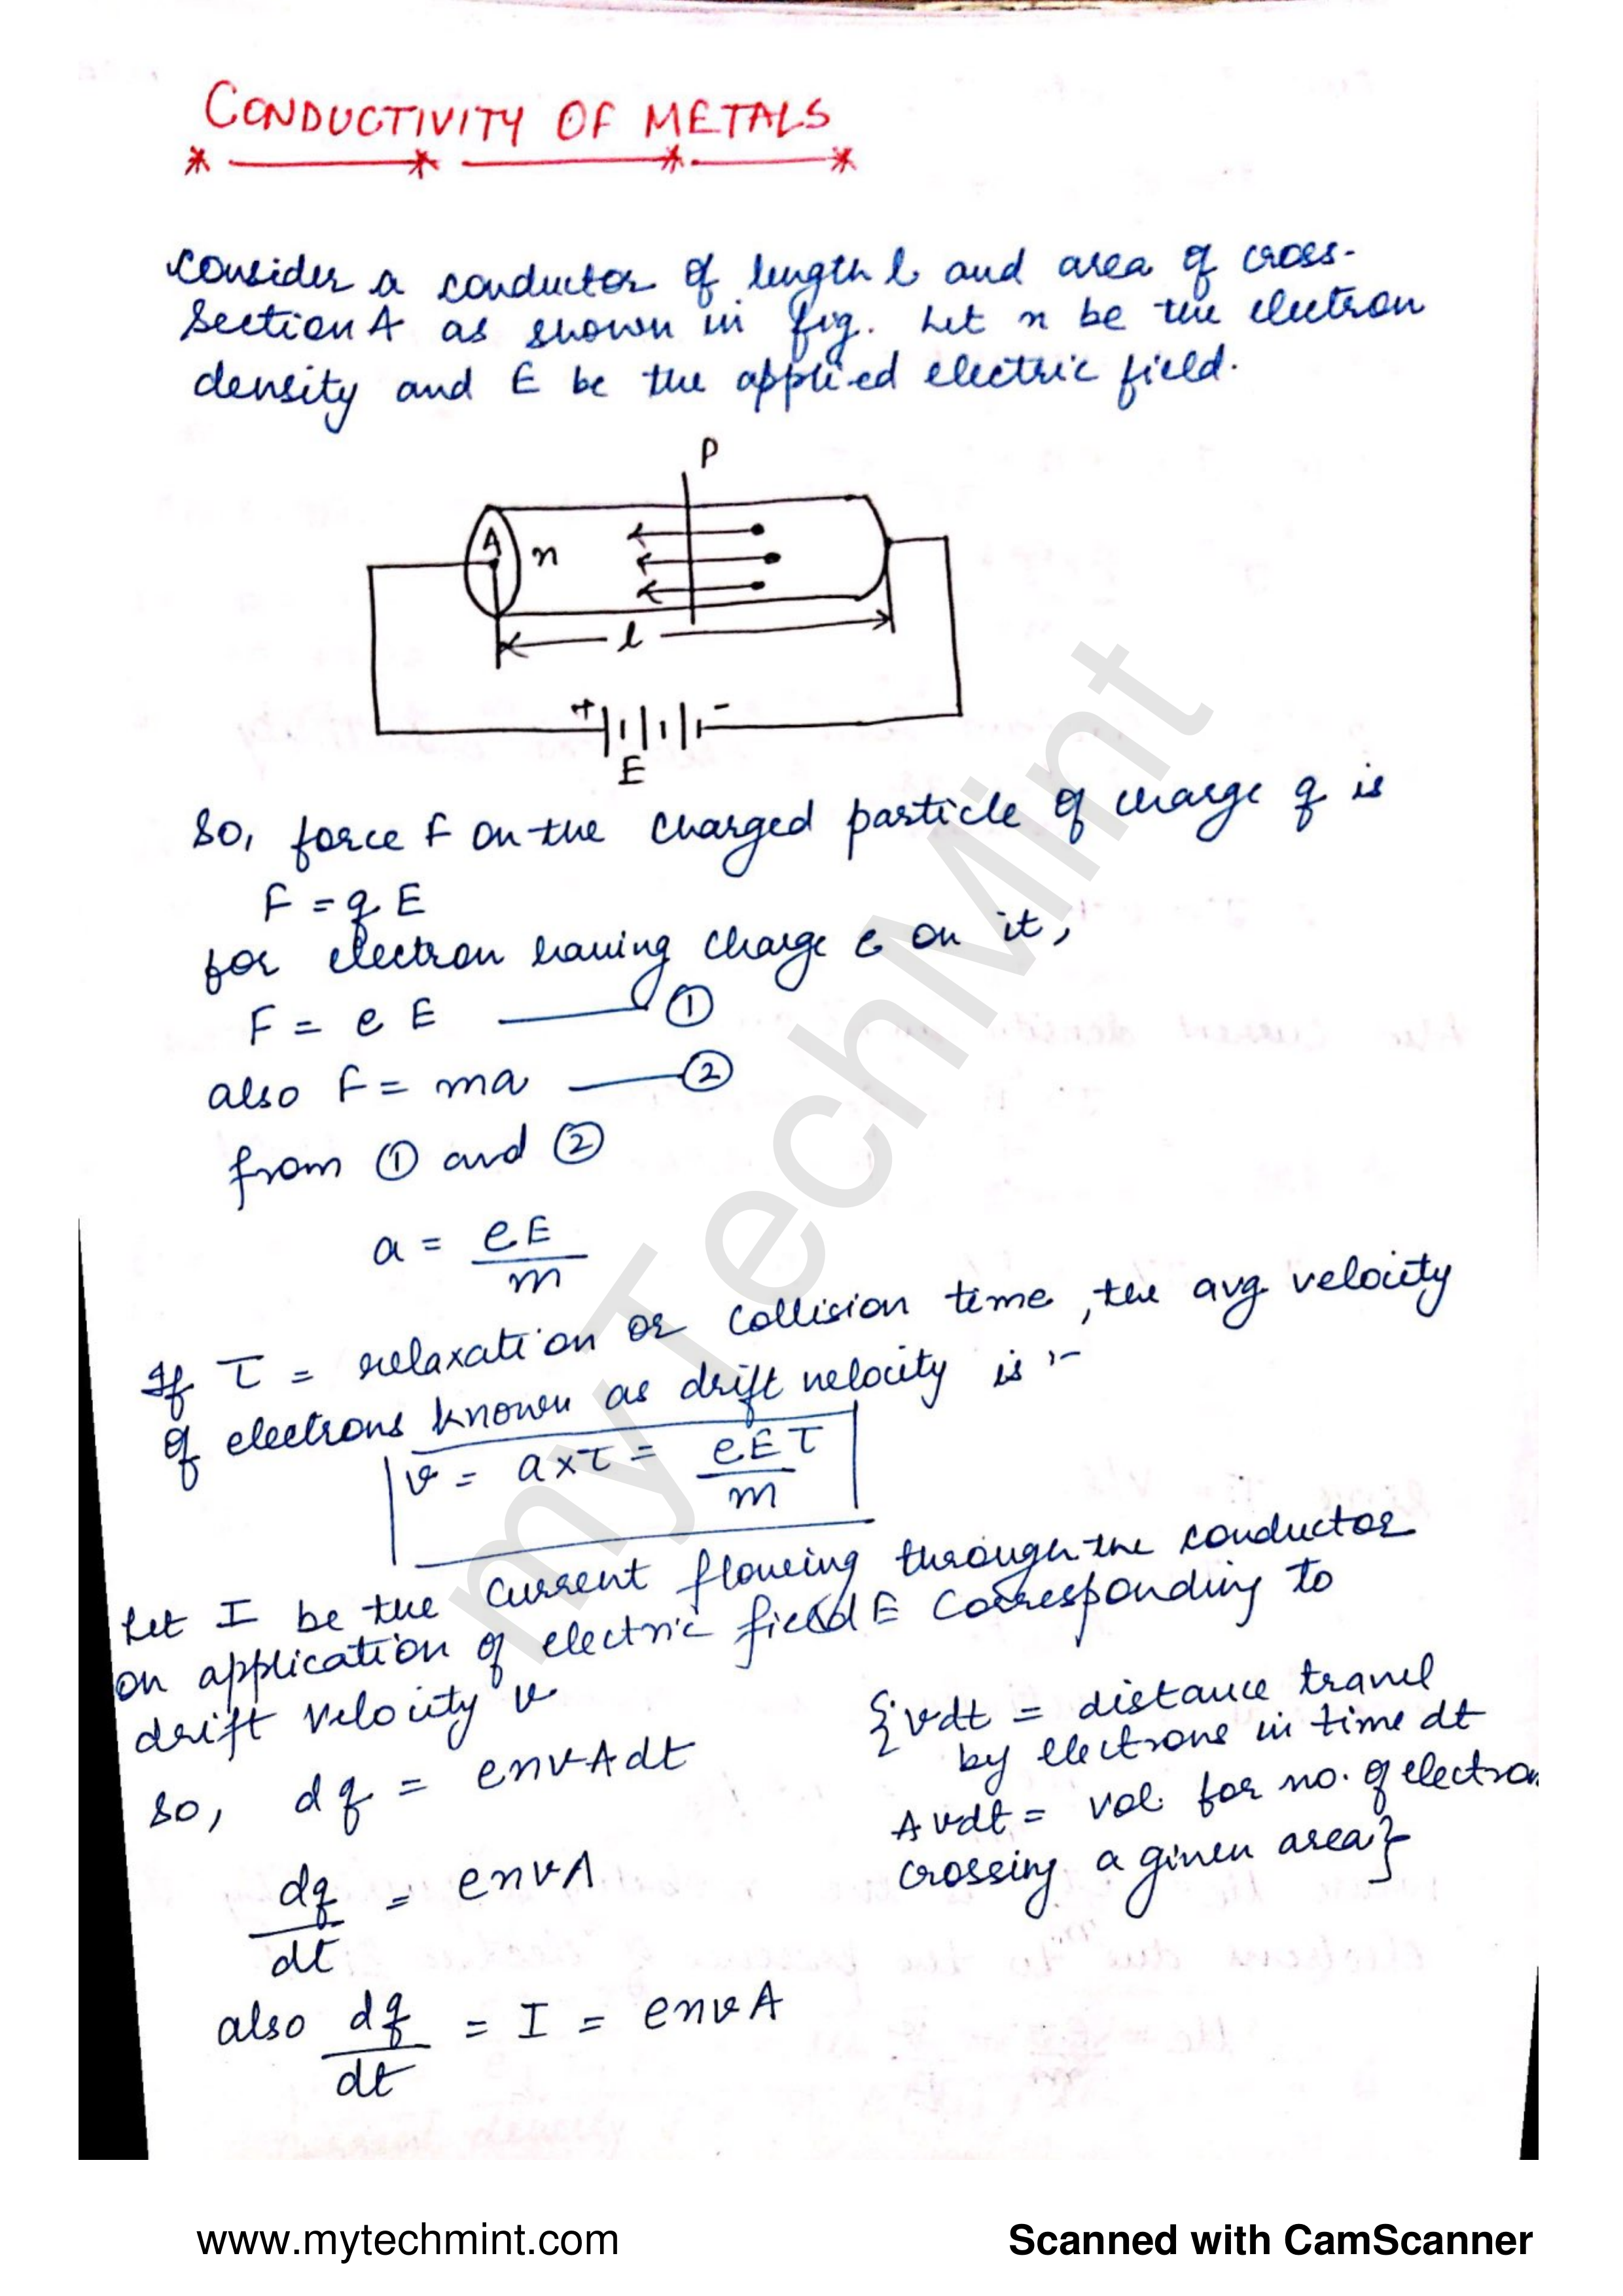 CONDUCTIVITY OF METALS
Consider a conductor of length l and area of cross-
Section A as shown in fig. Let n be the electron
density and E be the applied electric field.
P
A
n
l
+ -
E
So, force F on the charged particle of charge q is
F = qE
for electron having charge e on it,
F = e E ——— ①
also F = ma ——— ②
from ① and ②
a = eE/m
If τ = relaxation or collision time, the avg velocity
of electrons known as drift velocity is :-
v = a×τ = eEτ/m
Let I be the current flowing through the conductor
on application of electric field E corresponding to
drift velocity v
so, dq = envAdt
{vdt = distance travel
by electrons in time dt
Avdt = vol. for no. of electron
crossing a given area}
dq/dt = envA
also dq/dt = I = envA
myTechMint
www.mytechmint.com
Scanned with CamScanner